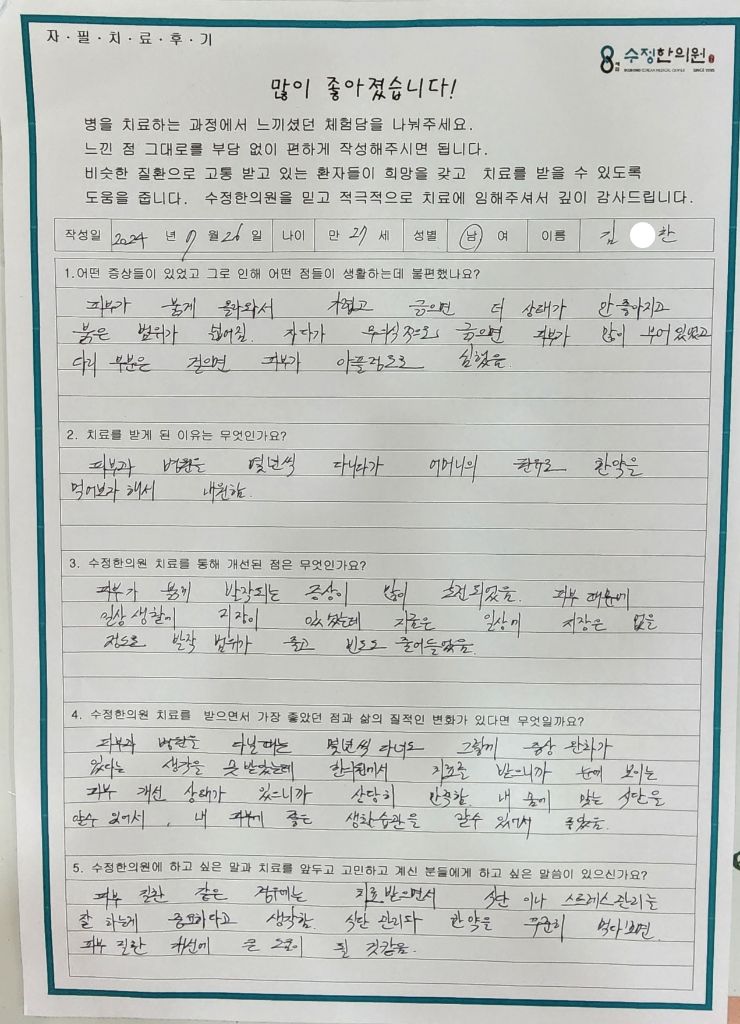 자·필·치·료·후·기
수정한의원
SINCE 1995
많이 좋아졌습니다!
병을 치료하는 과정에서 느끼셨던 체험담을 나눠주세요.
느낀 점 그대로를 부담 없이 편하게 작성해주시면 됩니다.
비슷한 질환으로 고통 받고 있는 환자들이 희망을 갖고 치료를 받을 수 있도록
도움을 줍니다. 수정한의원을 믿고 적극적으로 치료에 임해주셔서 깊이 감사드립니다.
작성일 2024 년 7 월 26 일 나이 만 27 세 성별 남 여 이름 김 한
1.어떤 증상들이 있었고 그로 인해 어떤 점들이 생활하는데 불편했나요?
피부가 붉게 올라와서 가렵고 긁으면 더 상태가 안 좋아지고
붉은 범위가 넓어짐. 자다가 무의식적으로 긁으면 피부가 많이 부어 있었고
다리 부분은 걸으면 피부가 아플정도로 심했음.
2. 치료를 받게 된 이유는 무엇인가요?
피부과 병원을 몇년씩 다니다가 어머니의 권유로 한약을
먹어보라 해서 내원함.
3. 수정한의원 치료를 통해 개선된 점은 무엇인가요?
피부가 붉게 발작되는 증상이 많이 호전되었음. 피부 때문에
일상생활에 지장이 있었는데 지금은 일상에 지장은 없을
정도로 발작 범위가 줄고 빈도도 줄어들었음.
4. 수정한의원 치료를 받으면서 가장 좋았던 점과 삶의 질적인 변화가 있다면 무엇일까요?
피부과 병원을 다닐때는 몇년씩 다녀도 그렇게 증상 완화가
있다는 생각을 못 받았는데 한의원에서 치료를 받으니까 눈에 보이는
피부 개선 상태가 있으니까 상당히 만족함. 내 몸에 맞는 식단을
알수 있어서, 내 피부에 좋은 생활습관을 알수 있어서 좋았음.
5. 수정한의원에 하고 싶은 말과 치료를 앞두고 고민하고 계신 분들에게 하고 싶은 말씀이 있으신가요?
피부 질환 같은 경우에는 치료받으면서 식단 이나 스트레스 관리는
잘 하는게 중요하다고 생각함. 식단 관리와 한약을 꾸준히 먹다보면
피부 질환 개선에 큰 도움이 될 것같음.